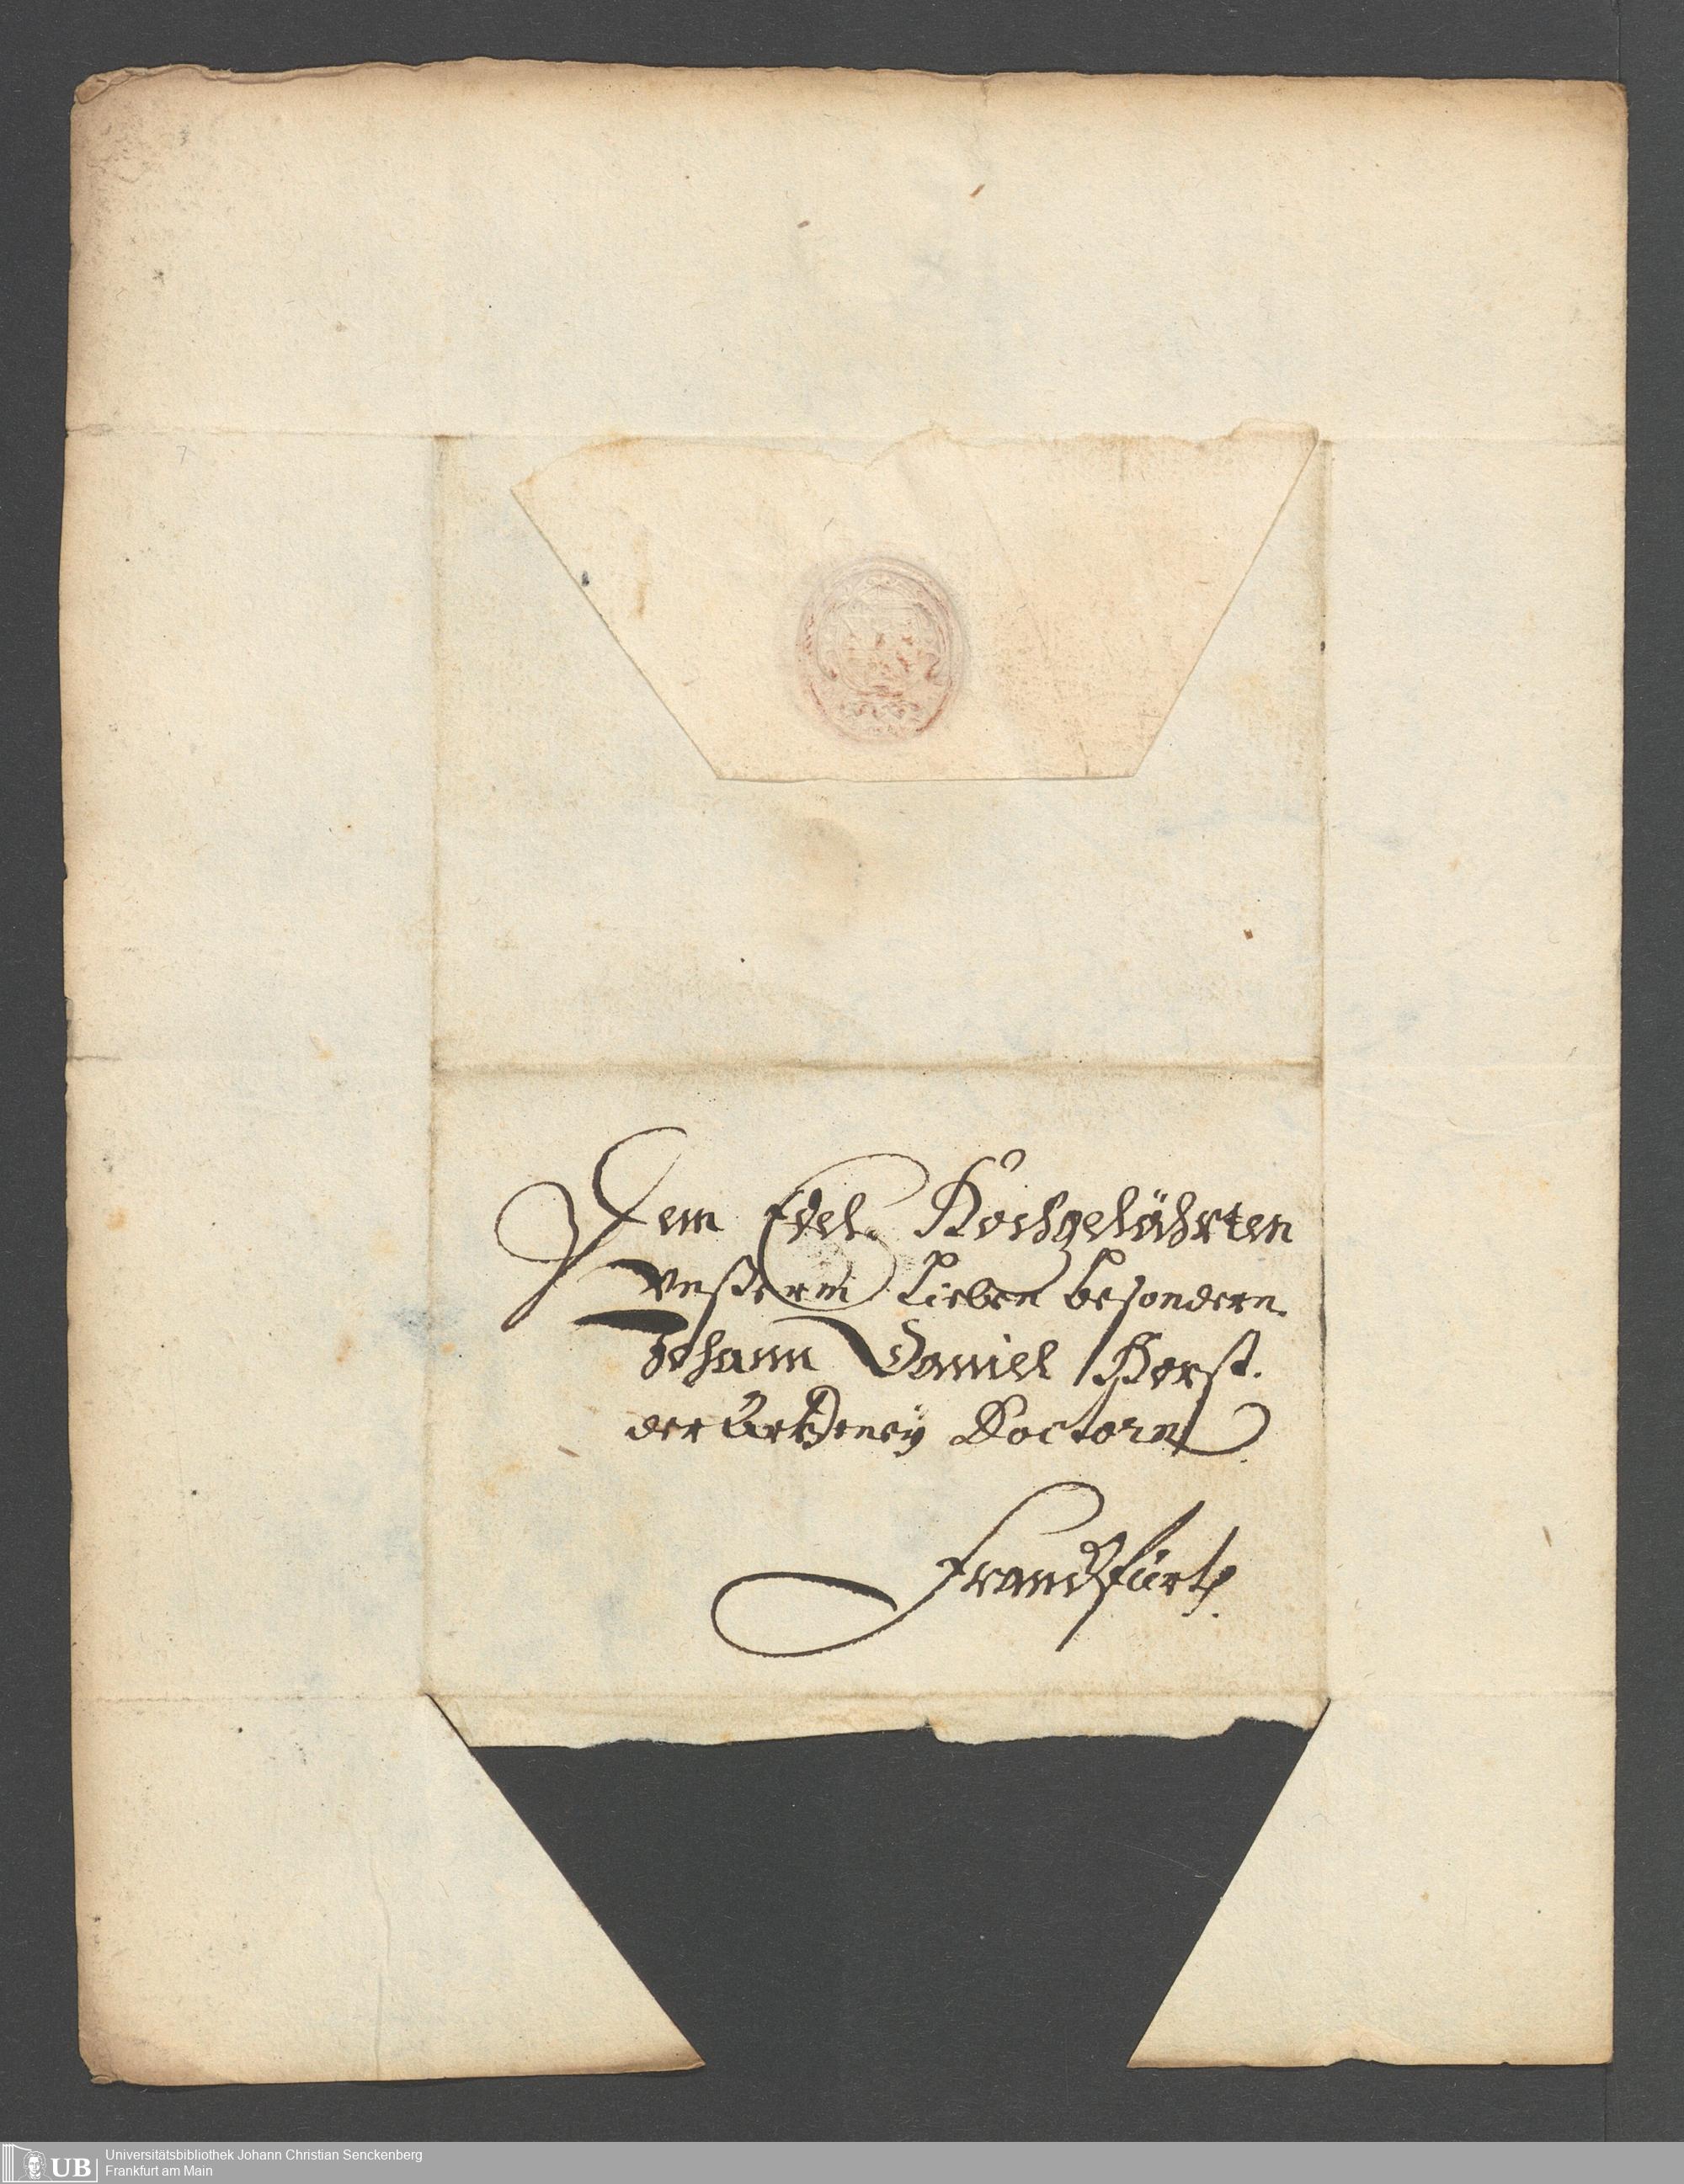 Dem Edel. Hochgelährten
Vnßerm Lieben besondern
Johann Daniel Horst.
der Artzeney Doctorn
Franckfürth.
UB
Universitätsbibliothek Johann Christian Senckenberg
Frankfurt am Main